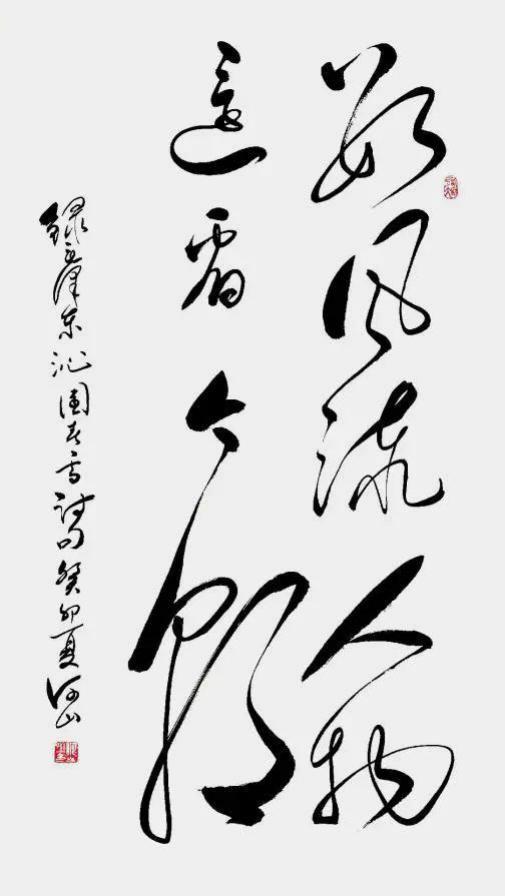 数风流人物
还看今朝
录毛泽东沁园春雪诗句癸卯夏河山